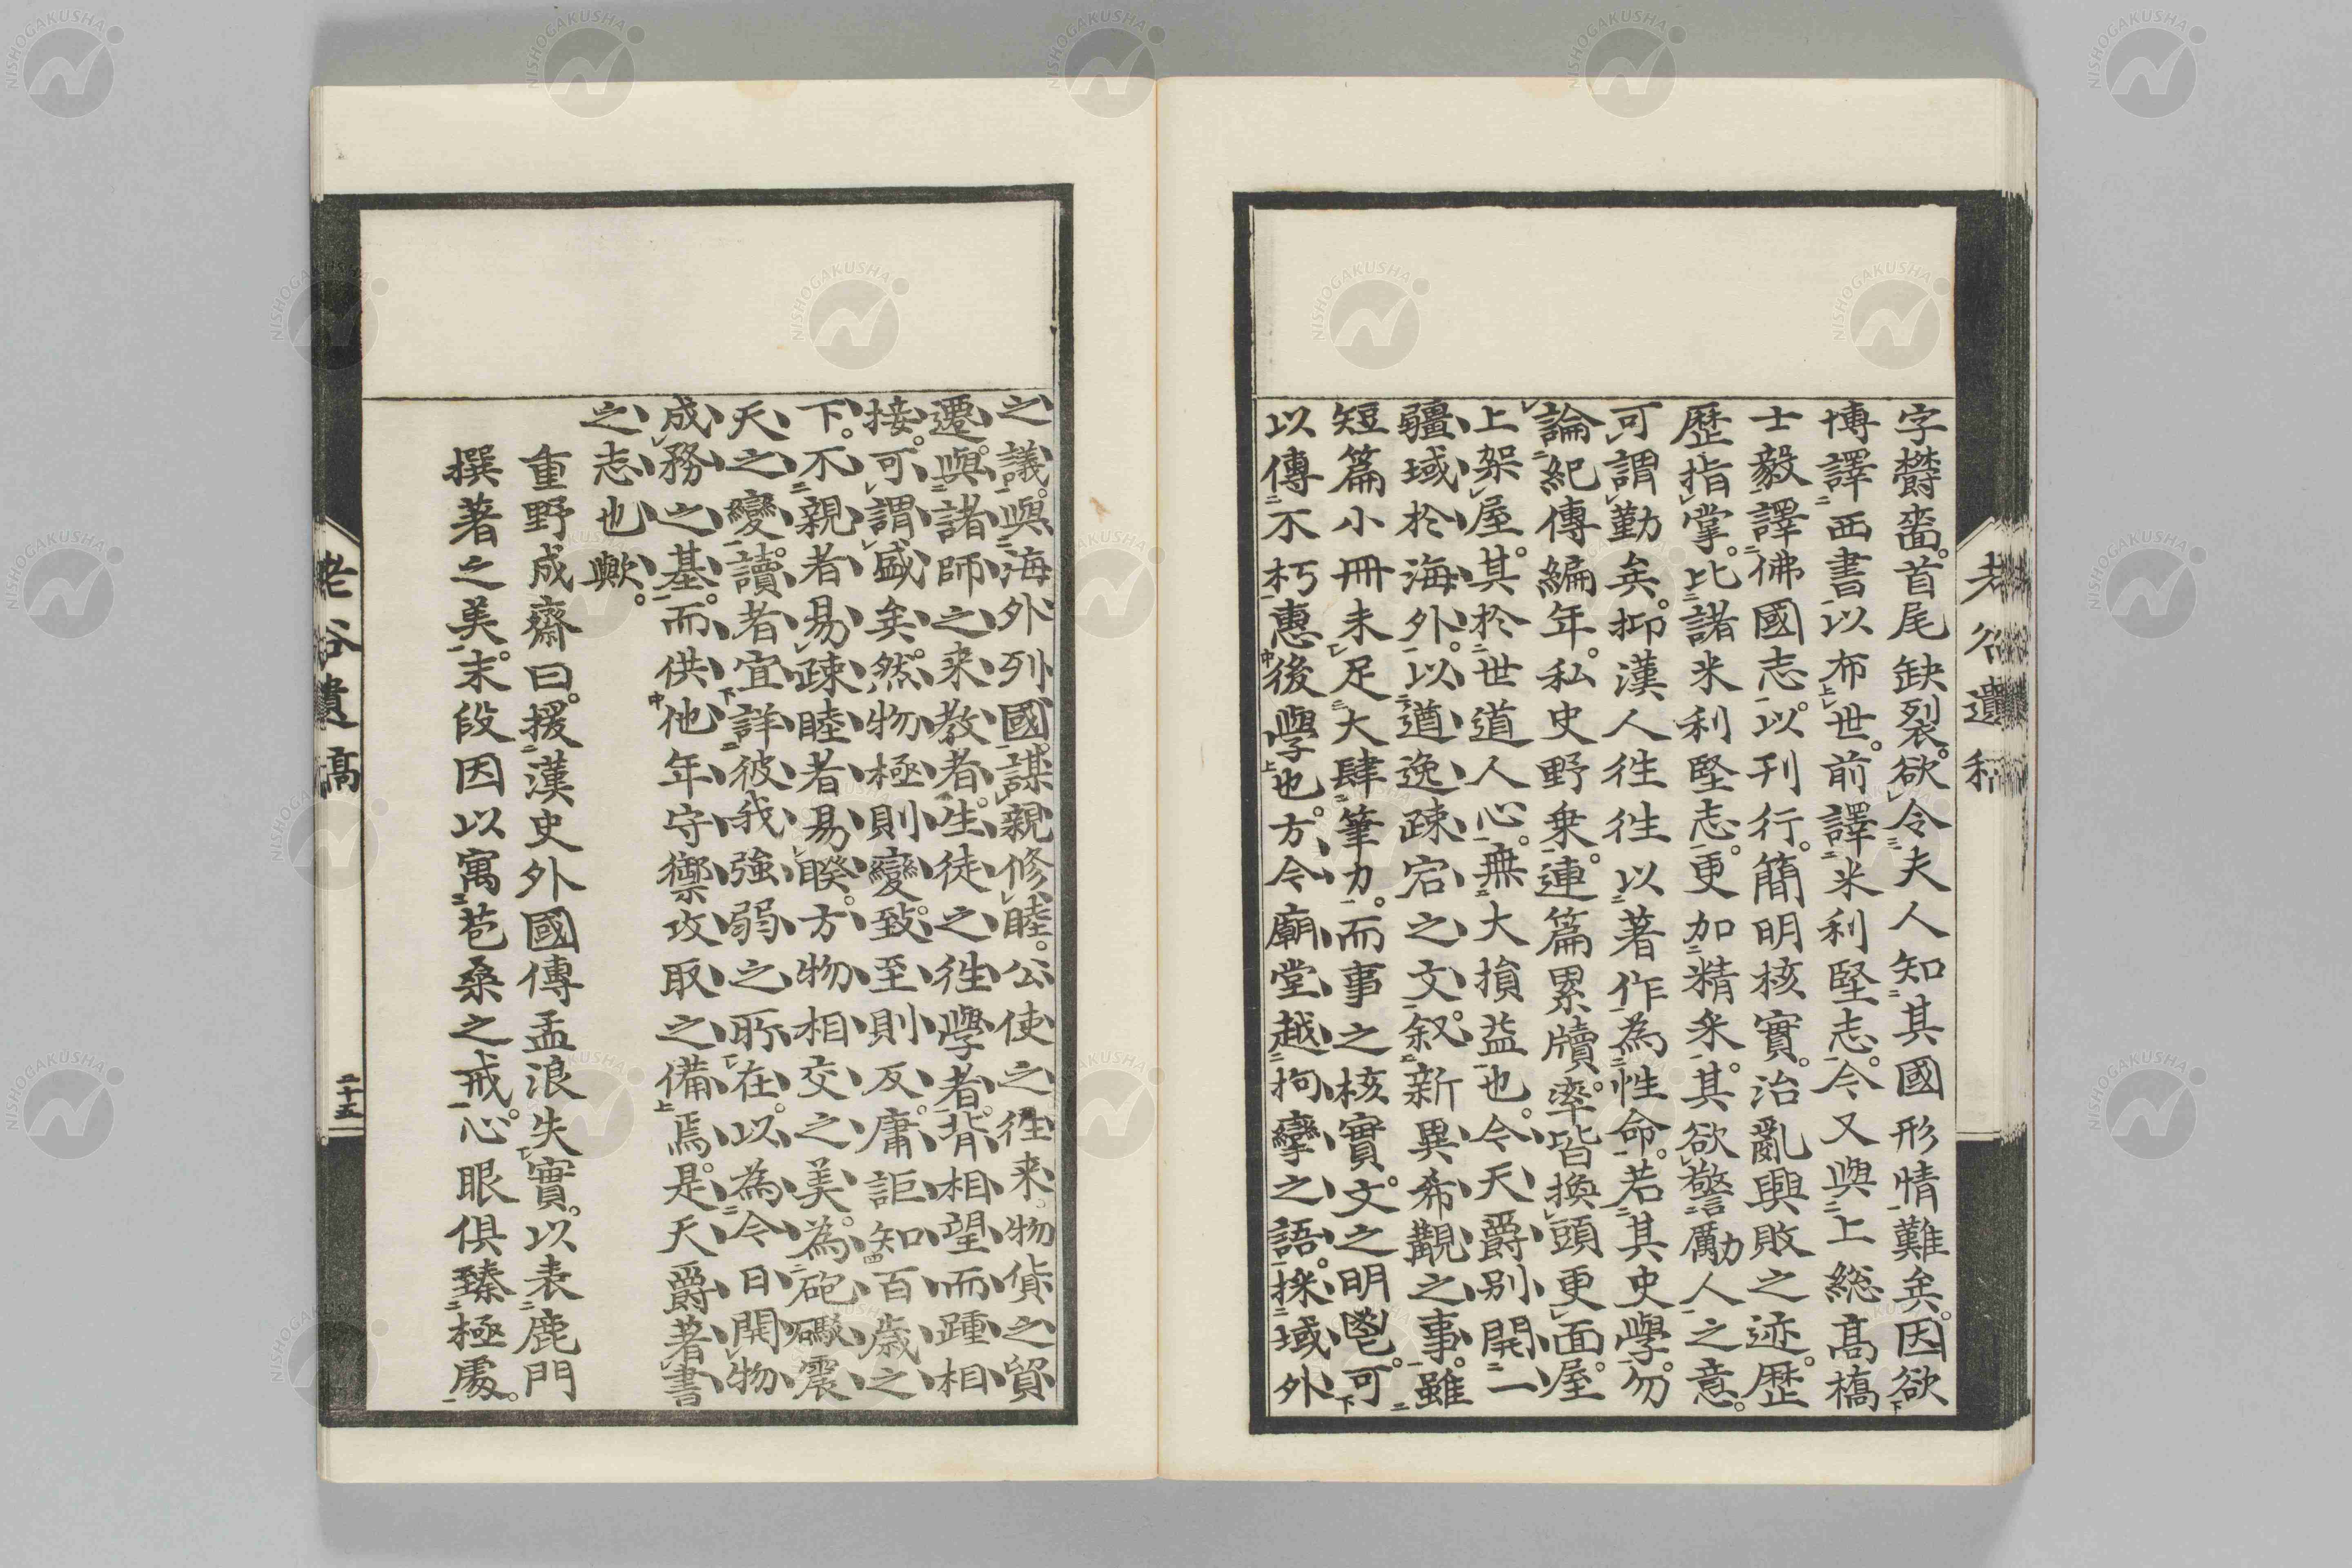 字欝啬。首尾缺裂。欲令夫人知其國形情難矣。因欲
博譯西書以布世。前譯米利堅志。今又與上総髙橋
士毅譯佛國志。以刊行。簡明核實。治亂興敗之迹。歴
歴指掌。比諸米利堅志。更加精采。其欲警勵人之意。
可謂勤矣。抑漢人徃徃以著作為性命。若其史學。勿
論紀傳編年。私史野乗。連篇累牘。率皆換頭更面。屋
上架屋。其於世道人心。無大損益也。今天爵别開一
疆域於海外。以遒逸疎宕之文。叙新異希覯之事。雖
短篇小冊未足大肆筆力。而事之核實。文之明鬯。可
以傳不朽惠後學也。方今廟堂越拘攣之語。採域外
之議。與海外列國。謀親修睦。公使之徃来。物貨之貿
遷。與諸師之来教者。生徒之徃學者。背相望而踵相
接。可謂盛矣。然物極則變。致至則反。庸詎知百歳之
下。不親者易疎睦者易睽。方物相交之美。為砲礮震
天之變。讀者宜詳彼我強弱之所在。以為今日開物
成務之基。而供他年守禦攻取之備焉。是天爵著書
之志也歟。
重野成齋曰。援漢史外國傳孟浪失實。以表鹿門
撰著之美。末段因以寓苞桑之戒。心眼俱臻極處。
老谷遺稿
二十五
老谷遺稿
NISHOGAKUSHA